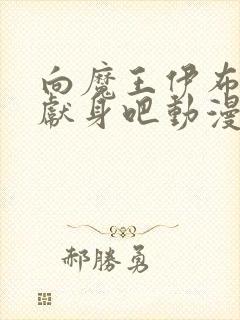 向魔王伊布
獻身吧動漫
郝勝勇